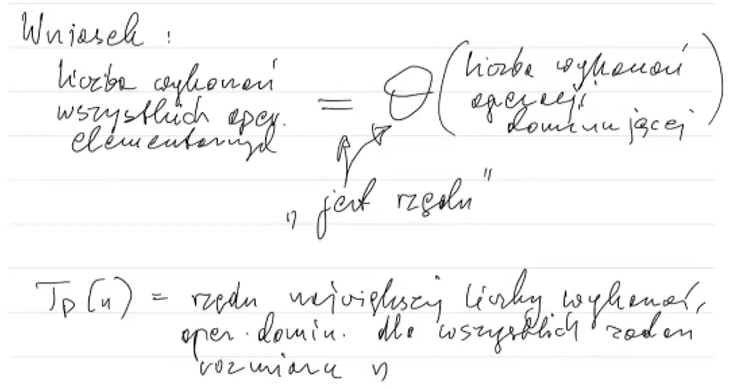 Wniosek :
liczba wykonań wszystkich oper. elementarnych = Θ ( liczba wykonań operacji dominującej )
„ jest rzędu "
T_P(n) = rzędu największej liczby wykonań,
oper. domin. dla wszystkich zadań
rozmiaru n